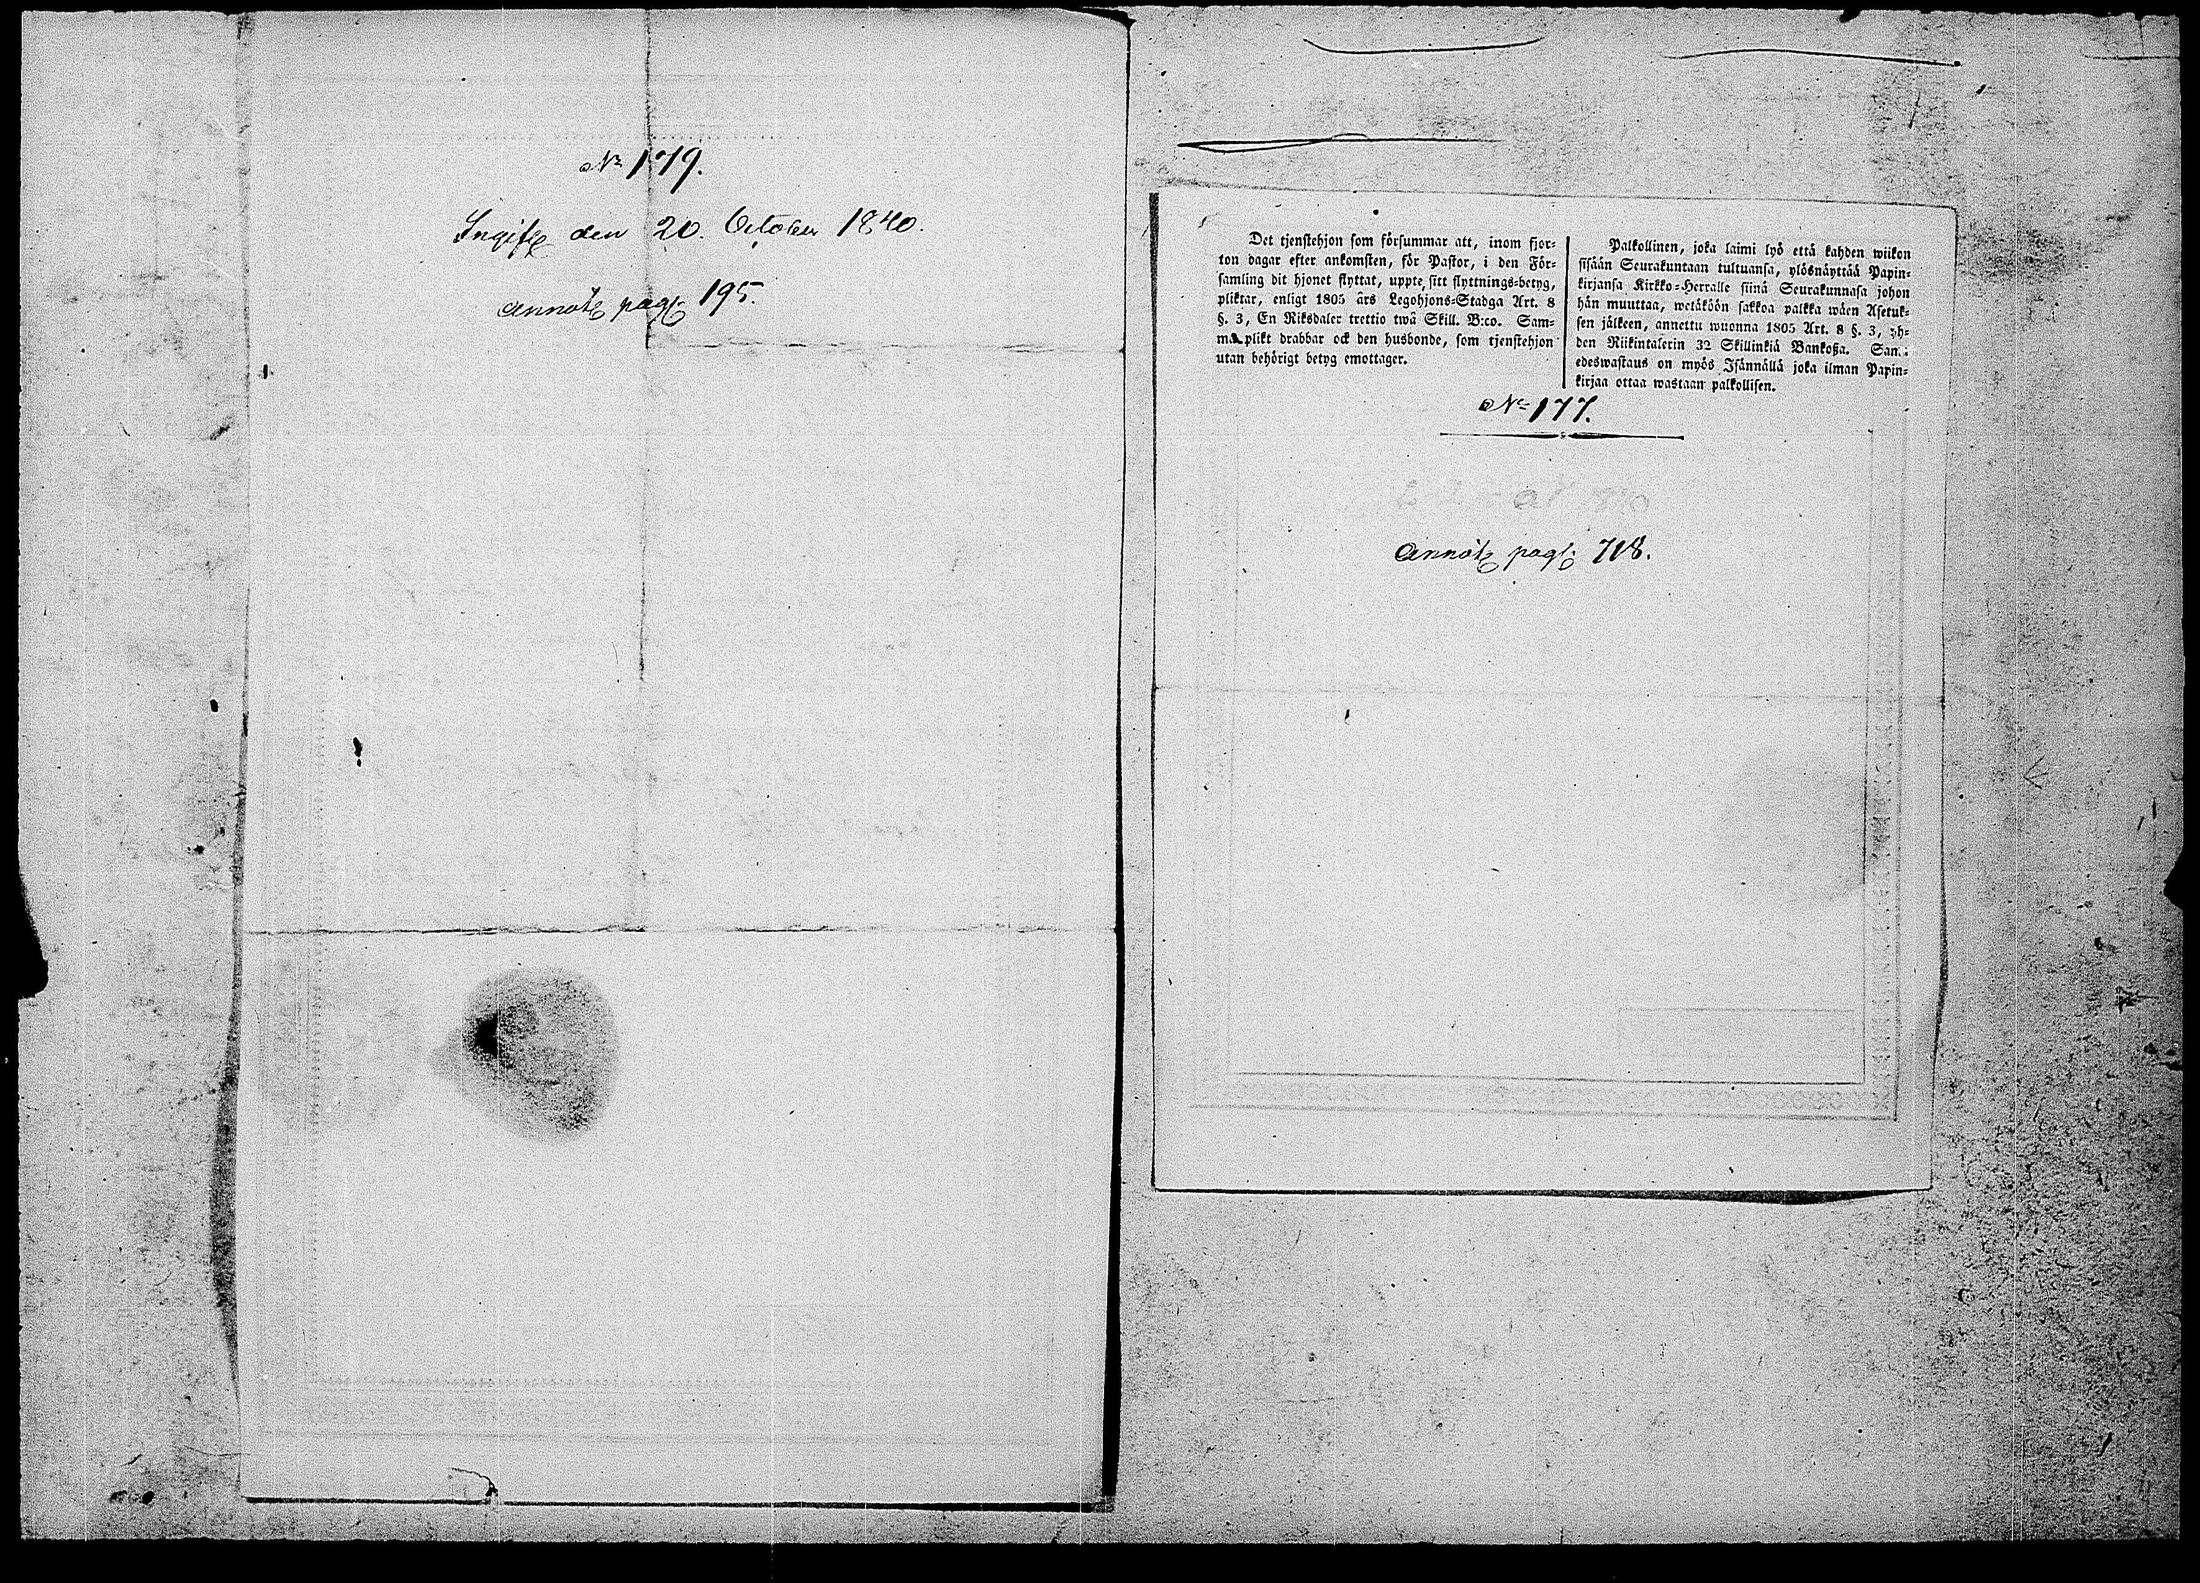 No 179.
Ingift den 20. October 1840.
Annot. pag. 195.
Det tjenstehjon som försummar att, inom fjor-
ton dagar efter ankomsten, för Pastor, i den För-
samling dit hjonet flyttat, uppte sitt flyttnings-betyg,
pliktar, enligt 1805 års Legohjons-Stadga Art. 8
§. 3, En Riksdaler trettio twå Skill. B:co. Sam-
ma plikt drabbar ock den husbonde, som tjenstehjon
utan behörigt betyg emottager.
Palkollinen, joka laimi lyö että kahden wiikon
sisään Seurakuntaan tultuansa, ylösnäyttää Papin-
kirjansa Kirkko-Herralle siinä Seurakunnasa johon
hän muuttaa, wetäköön sakkoa palkka wäen Asetuk-
sen jälkeen, annettu wuonna 1805 Art. 8 §. 3, yh-
den Riikintalerin 32 Skillinkiä Bankoßa. Sam-
edeswastaus on myös Isännällä joka ilman Papin-
kirjaa ottaa wastaan palkollisen.
No 177.
Annot. pag. 718.